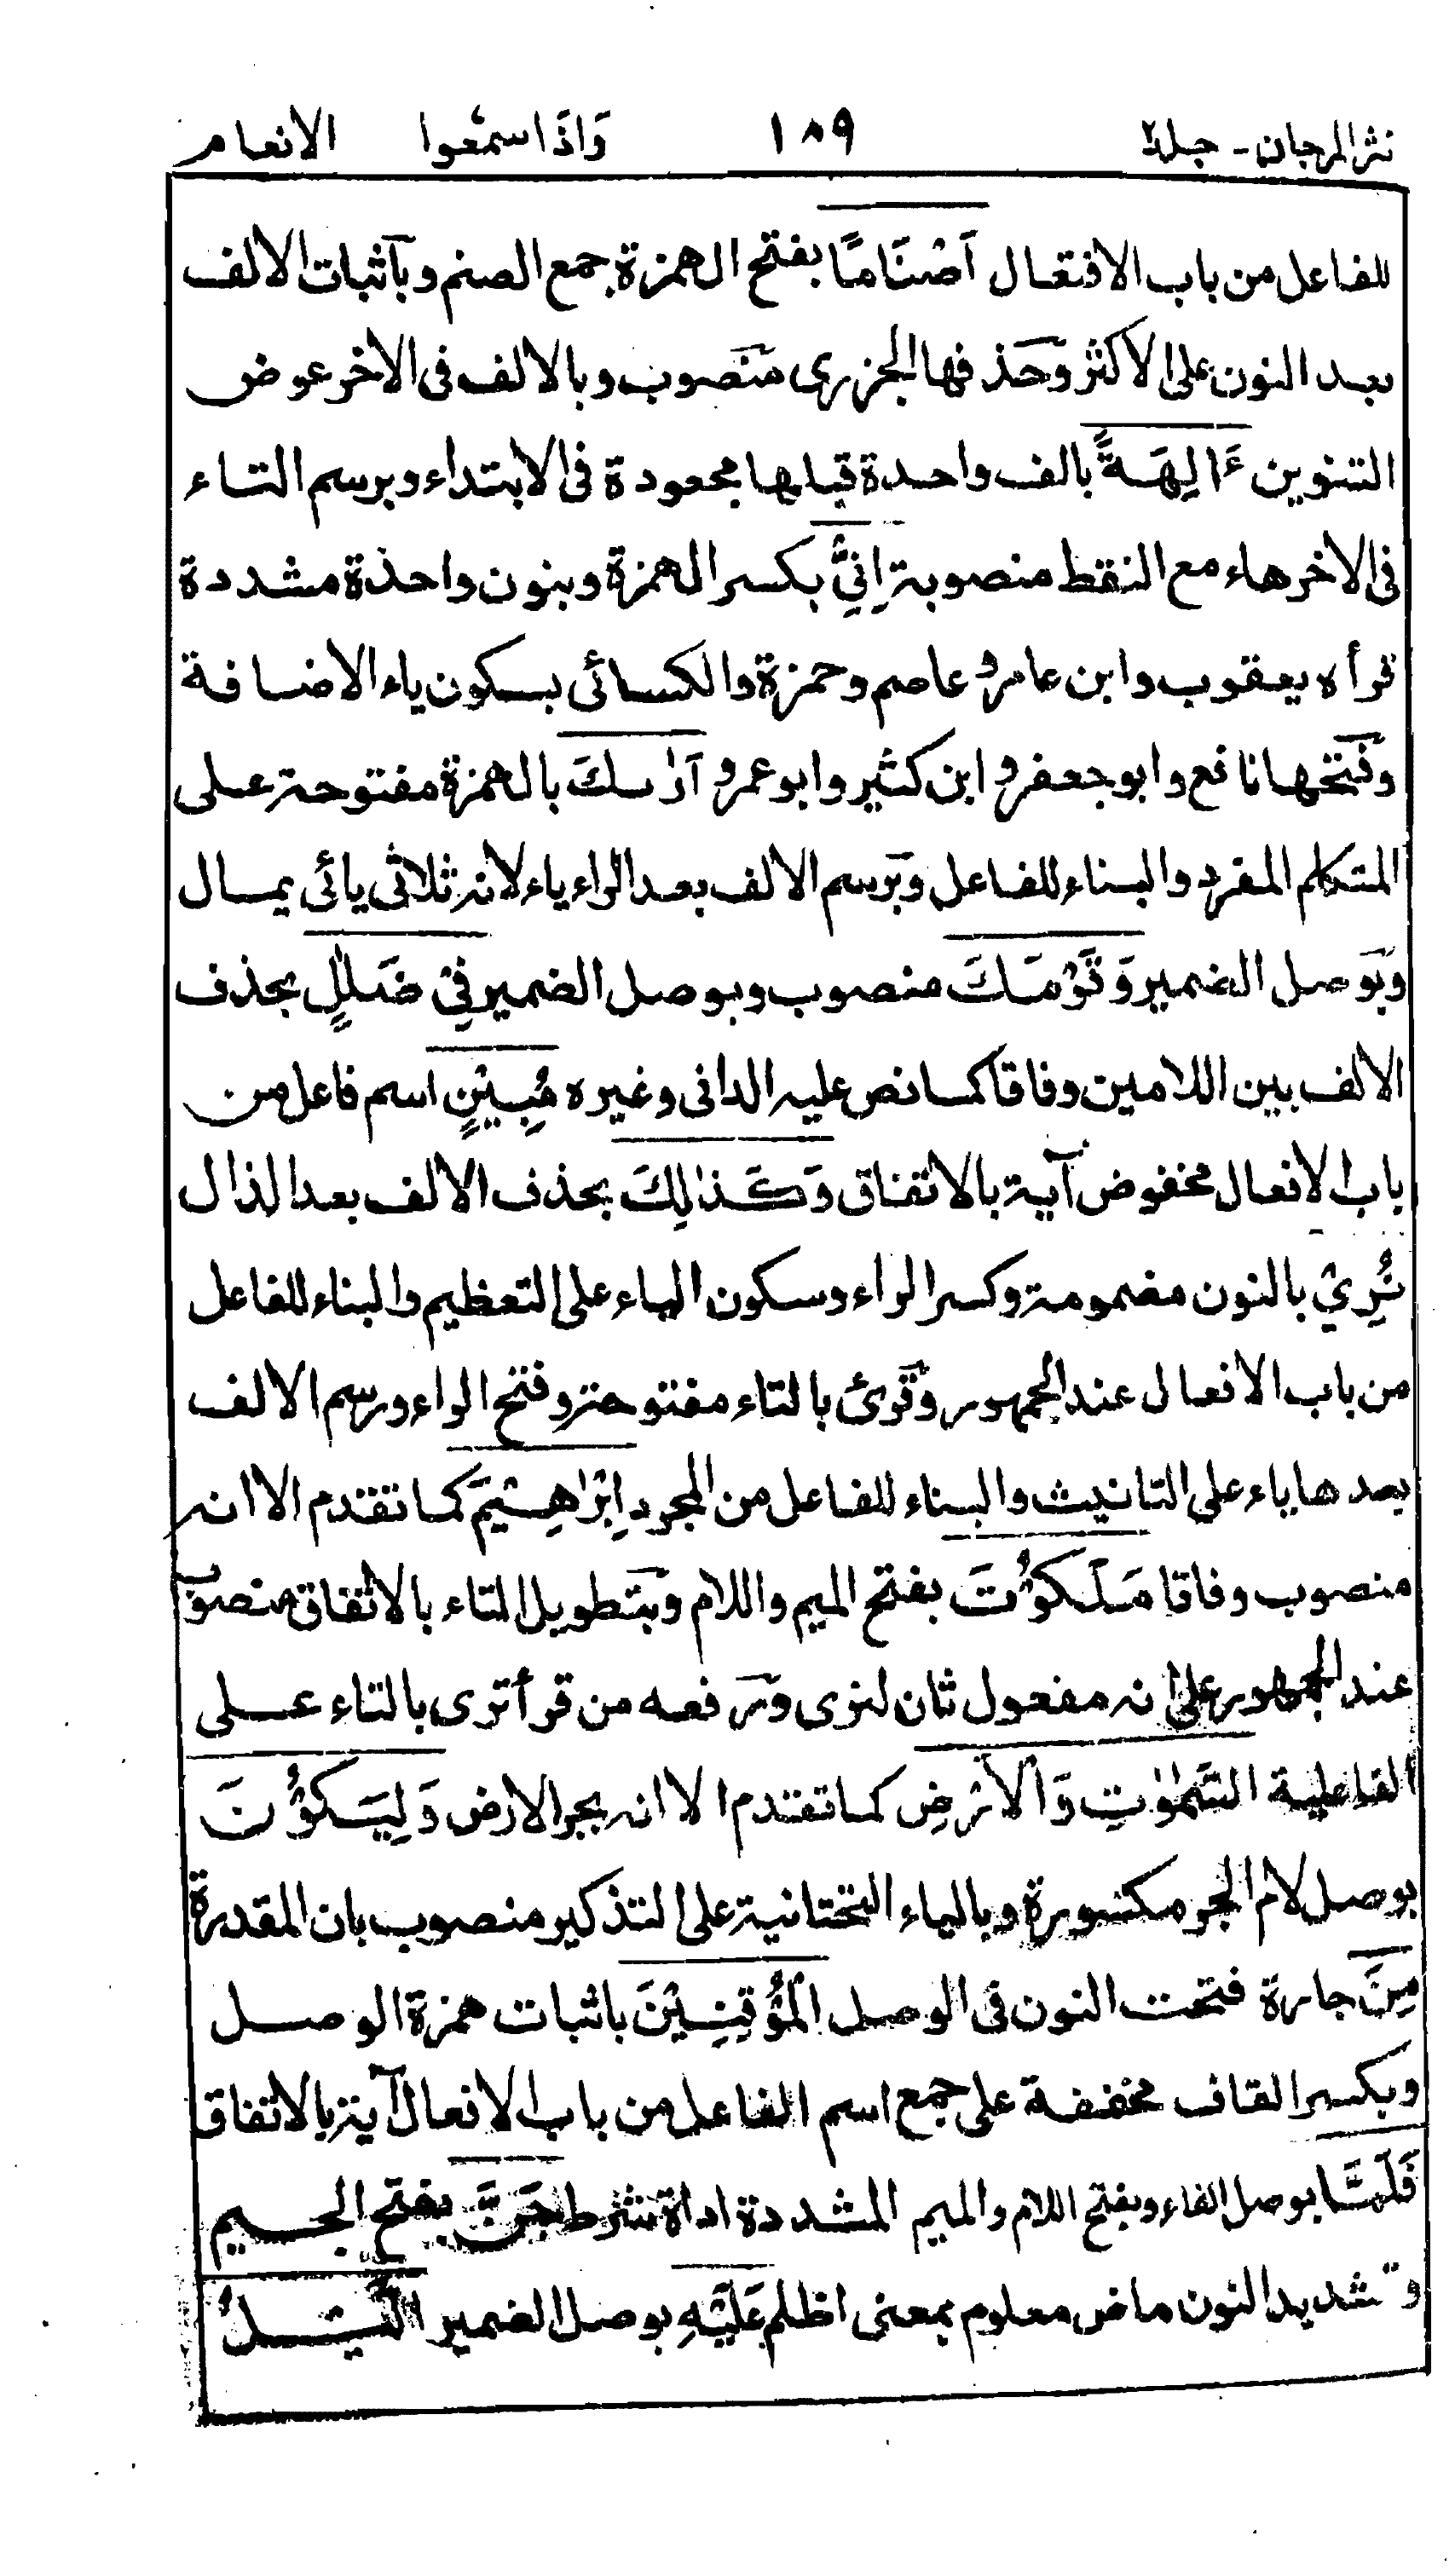 نثر المرجان - جلد٢ ١٨٩ وَاِذَا سمعُوا الانعام
للفاعل من باب الافتعال اَصْنَامًا بفتح الهمزة جمع الصنم وباثبات الالف
بعد النون على الاكثر وحذفها الجزرى منصوب وبالالف فى الاخر عوض
التنوين ءَالِهَةً بالف واحدة قبلها مجعودة فى الابتداء وبرسم التاء
فى الاخر هاء مع النقط منصوبة اِنِّىْ بكسر الهمزة وبنون واحدة مشددة
قرأه يعقوب وابن عامر وعاصم وحمزة والكسائى بسكون ياء الاضافة
وفتحها نافع وابو جعفر وابن كثير وابو عمرو اَرٰىكَ بالهمزة مفتوحة على
المتكلم المفرد والبناء للفاعل وبرسم الالف بعد الراء ياء لانه ثلاثى يائى يمال
وبوصل الضمير وَقَوْمَكَ منصوب وبوصل الضمير فِىْ ضَلٰلٍ بحذف
الالف بين اللامين وفاقا كما نص عليه الدانى وغيره مُبِيْنٍ اسم فاعل من
باب الافعال مخفوض آية بالاتفاق وَكَذٰلِكَ بحذف الالف بعد الذال
نُرِىْ بالنون مضمومة وكسر الراء وسكون الياء على التعظيم والبناء للفاعل
من باب الافعال عند الجمهور وقرئ بالتاء مفتوحة وفتح الراء ورسم الالف
بعدها ياء على التانيث والبناء للفاعل من المجرد اِبْرٰهِيْمَ كما تقدم الا انه
منصوب وفاقا مَلَكُوْتَ بفتح الميم واللام وبتطويل التاء بالاتفاق منصوب
عند الجمهور على انه مفعول ثان لنرى ورفعه من قرأ ترى بالتاء على
الفاعلية السَّمٰوٰتِ وَالْاَرْضِ كما تقدم الا انه بجر الارض وَلِيَكُوْنَ
بوصل لام الجر مكسورة وبالياء التحتانية على التذكير منصوب بان المقدرة
مِنَ جارة فتحت النون فى الوصل الْمُوْقِنِيْنَ باثبات همزة الوصل
وبكسر القاف مخففة على جمع اسم الفاعل من باب الافعال آية بالاتفاق
فَلَمَّا بوصل الفاء وبفتح اللام والميم المشددة اداة شرط جَنَّ بفتح الجيم
وتشديد النون ماض معلوم بمعنى اظلم عَلَيْهِ بوصل الضمير الَّيْلُ